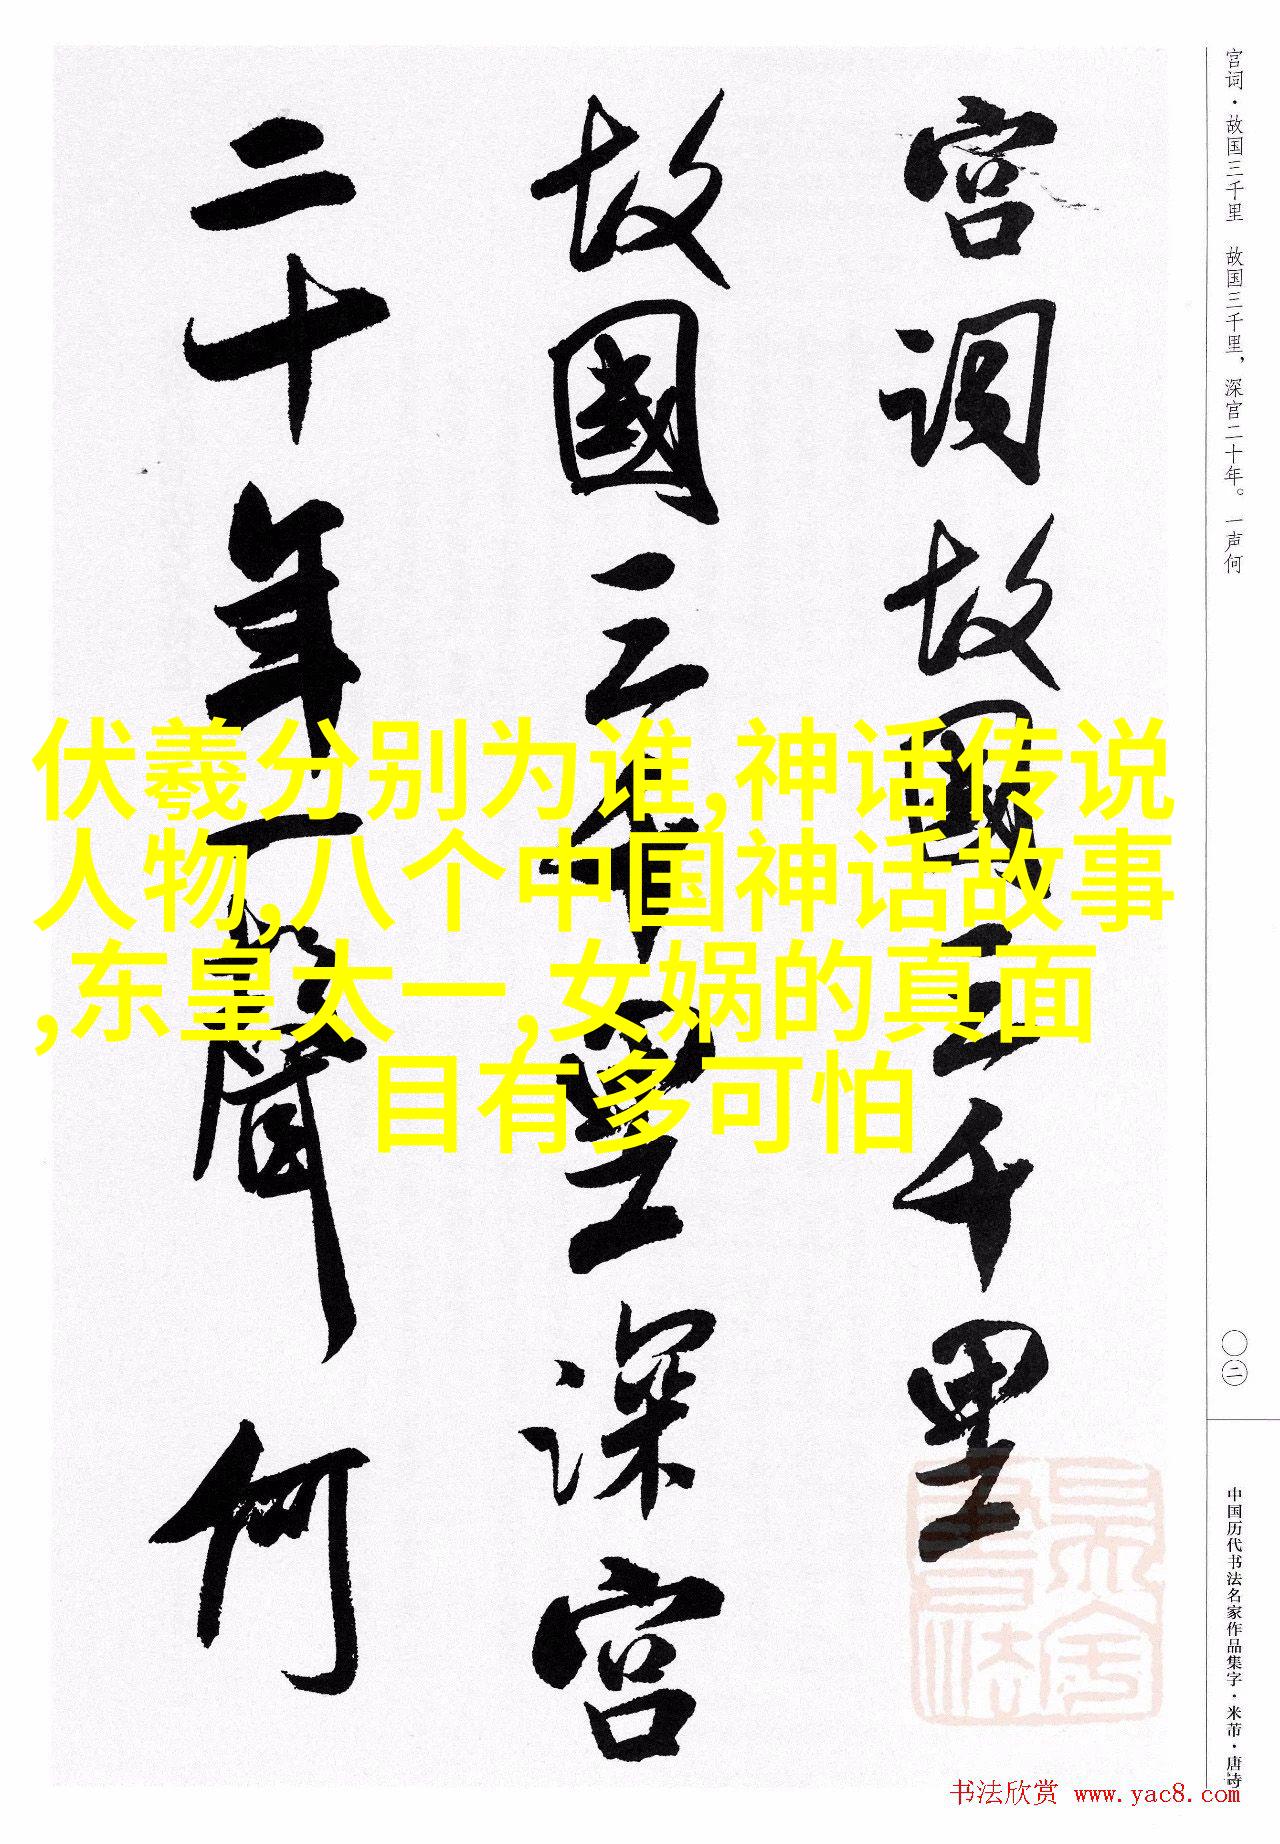 宫词·故国三千里　故国三千里，深宫二十年。一声何
宫词故国三千里
故國三千里深宫
二十年一聲何
伏羲分别为谁,神话传说
人物,八个中国神话故事
,东皇太一,女娲的真面
目有多可怕
〇二
中国历代书法名家作品集字·米芾·唐诗
书法欣赏 www.yac8.com